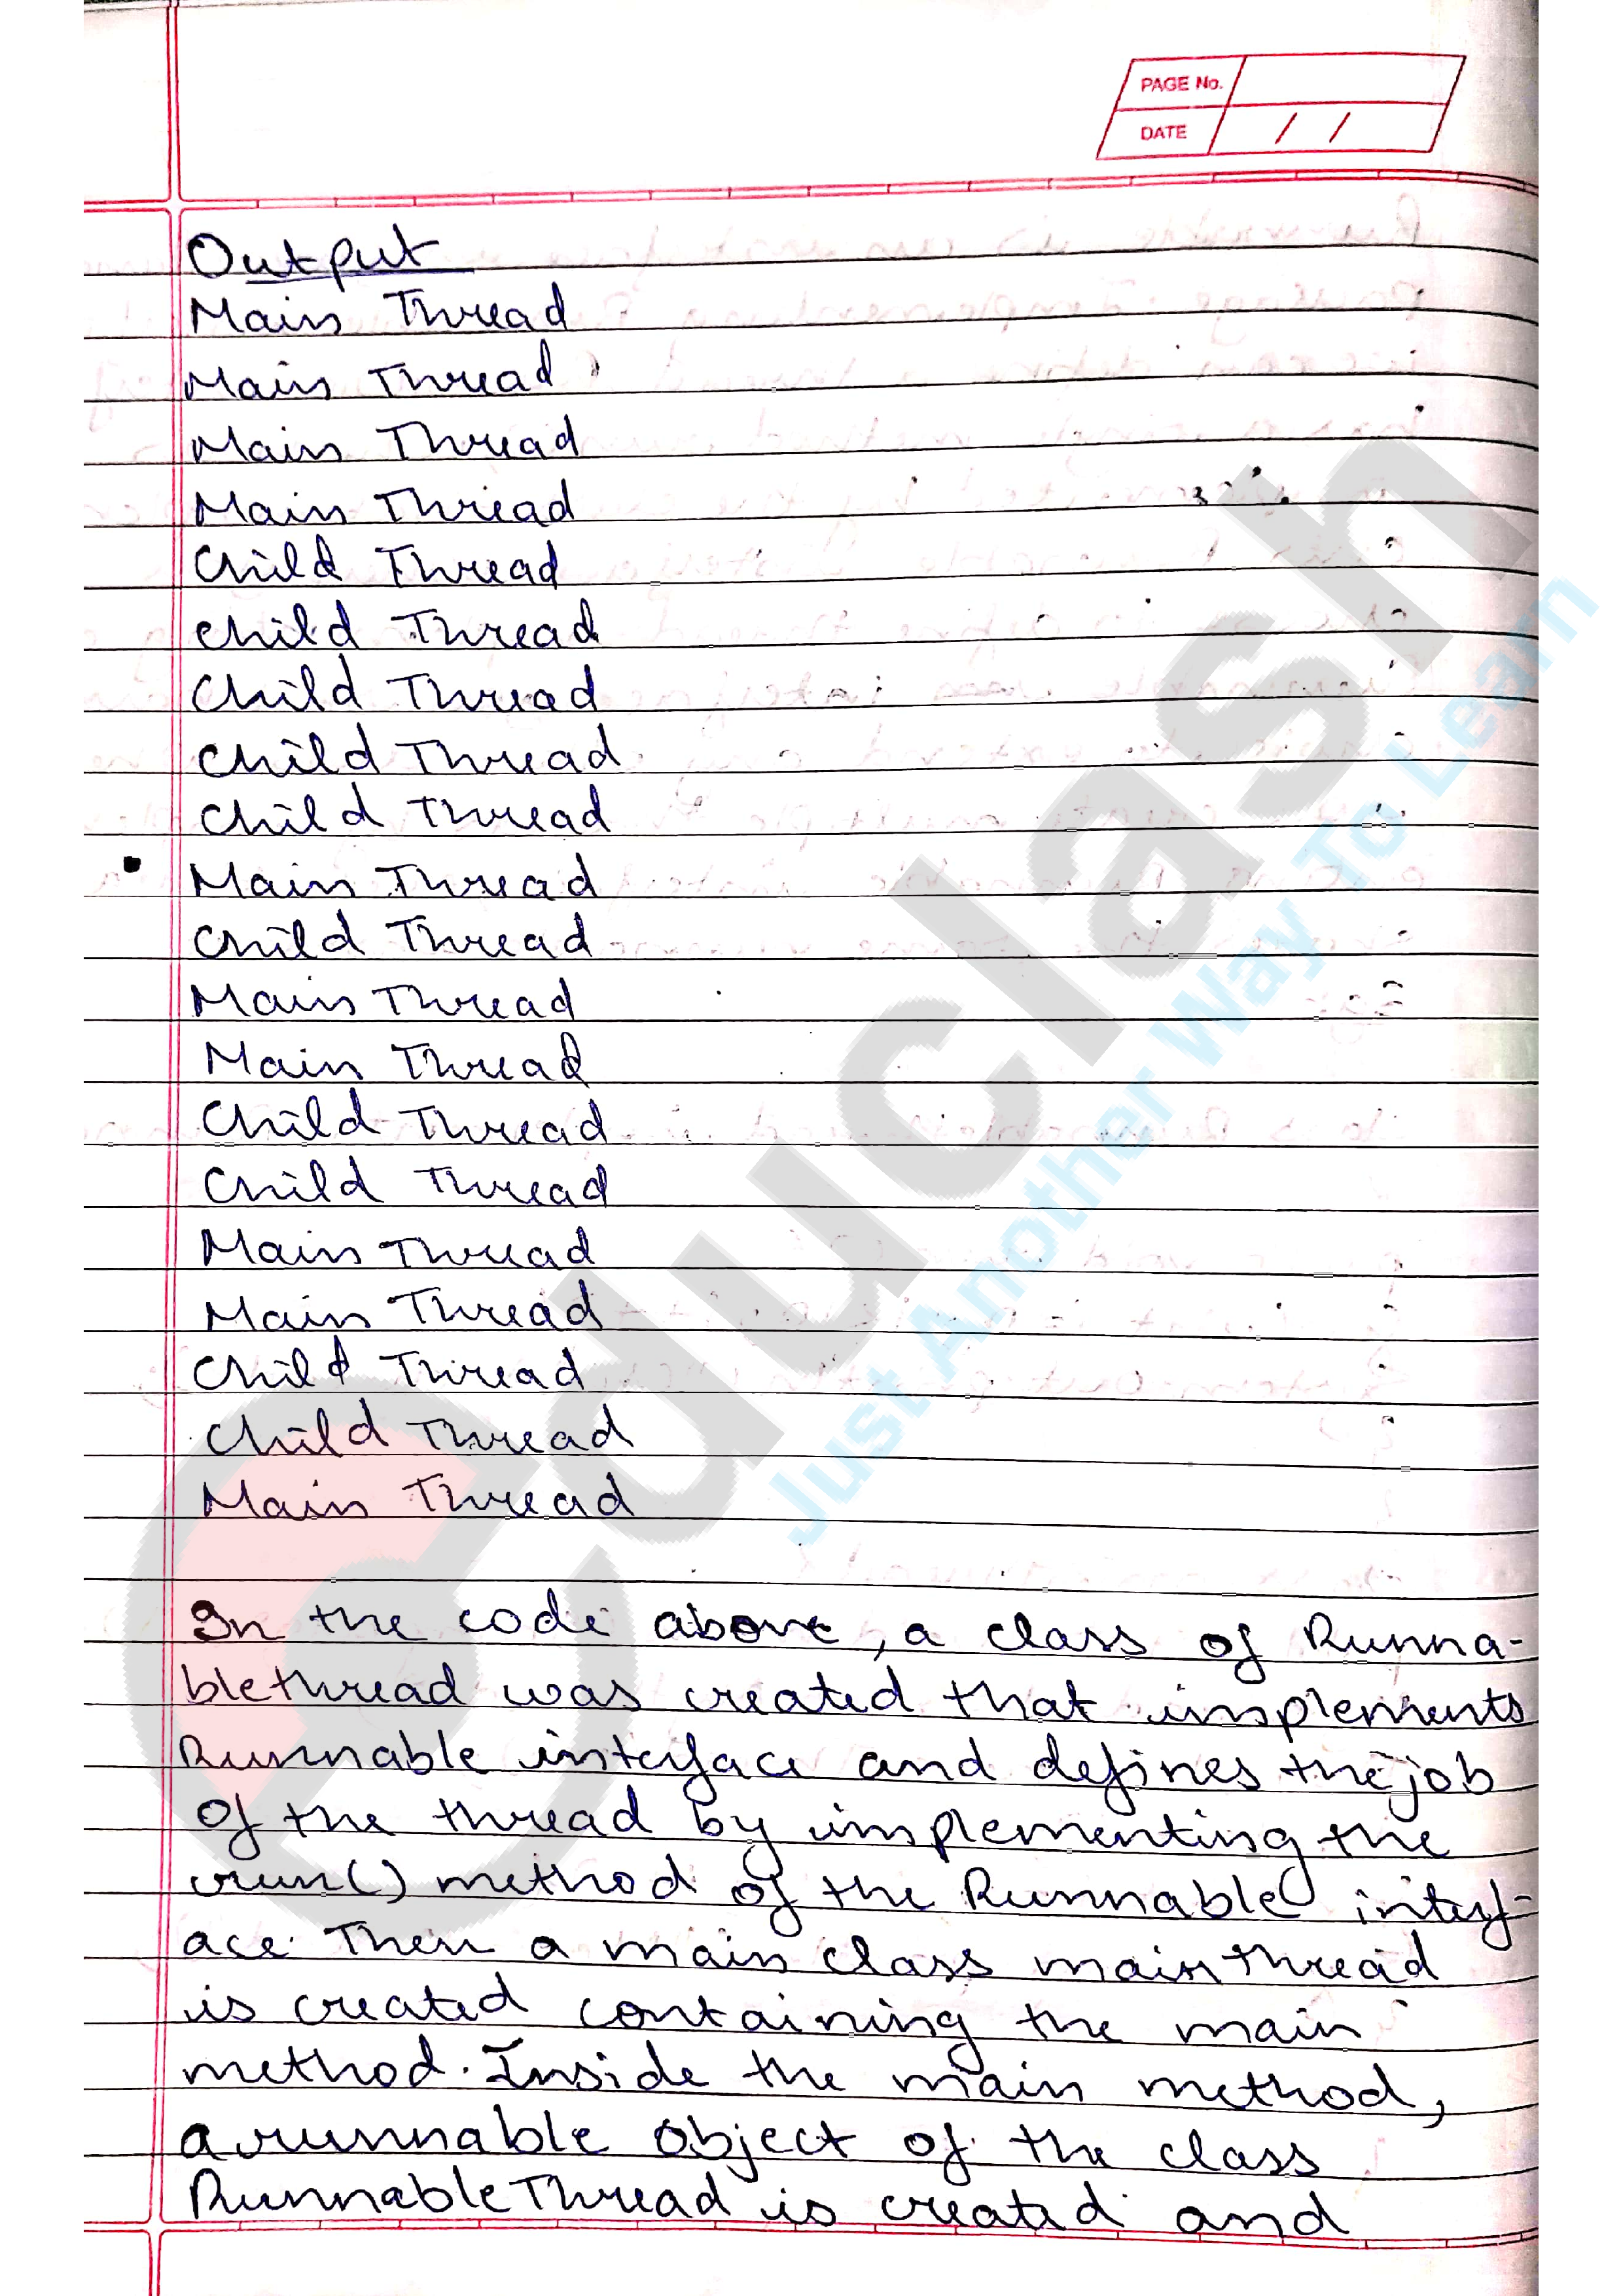 PAGE No.
DATE / /
Output
Main Thread
Main Thread
Main Thread
Main Thread
Child Thread
Child Thread
Child Thread
Child Thread
Child Thread
Main Thread
Child Thread
Main Thread
Main Thread
Child Thread
Child Thread
Main Thread
Main Thread
Child Thread
Child Thread
Main Thread
In the code above, a class of Runna-
blethread was created that implements
Runnable interface and defines the job
of the thread by implementing the
run() method of the Runnable interf-
ace. Then a main class mainthread
is created containing the main
method. Inside the main method,
a runnable object of the class
RunnableThread is created and
educlash
Just Another Way To Learn